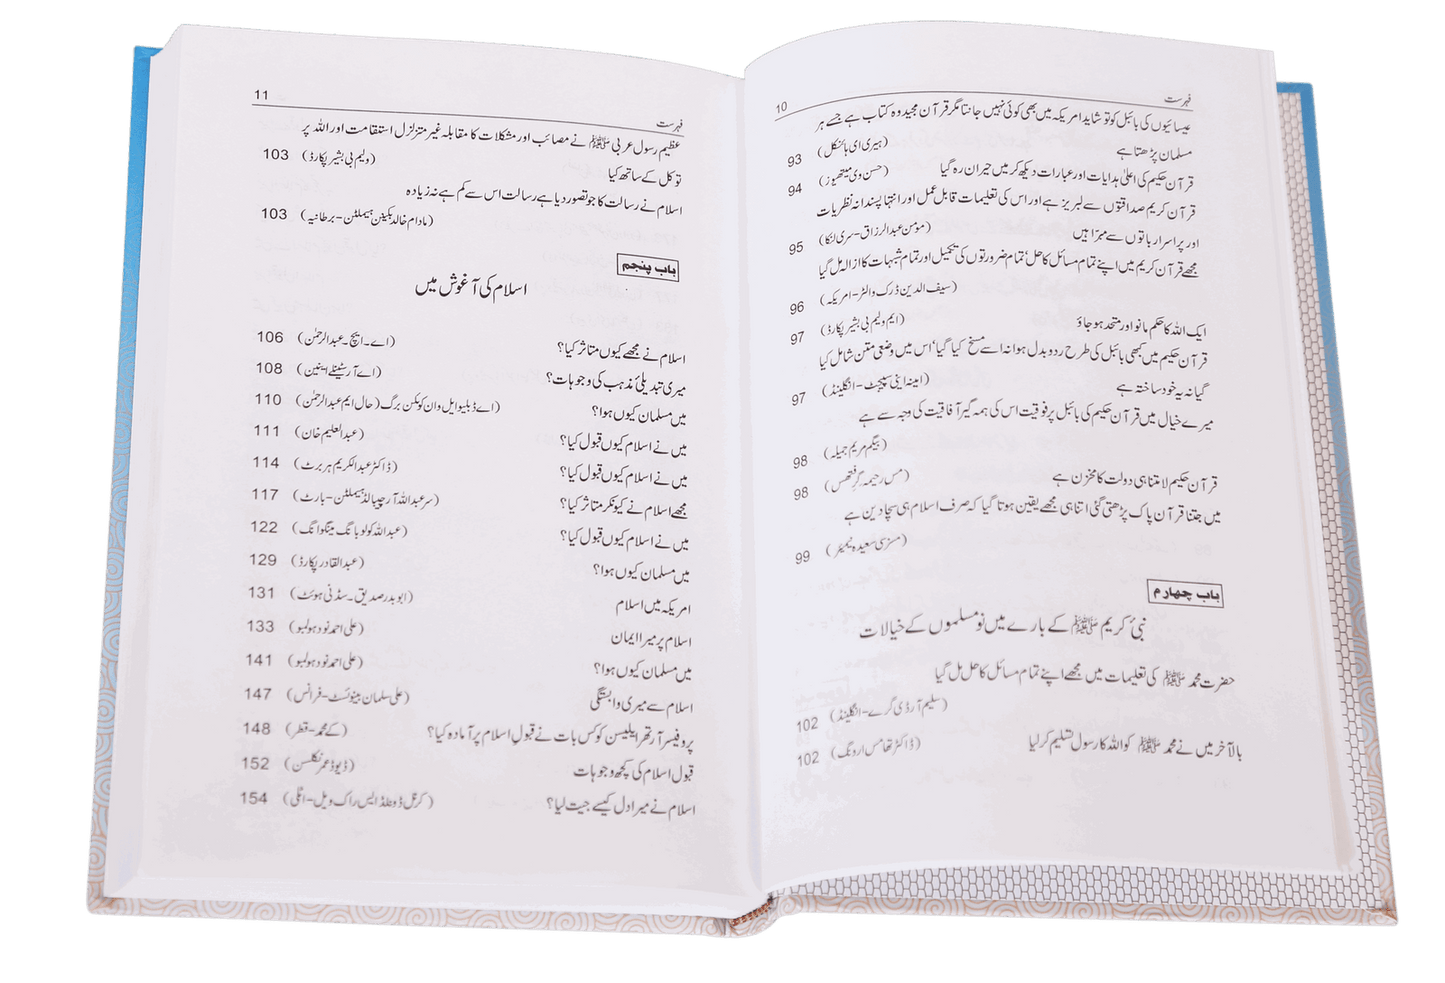 فہرست 10
عیسائیوں کی بائبل کو تو شاید امریکہ میں بھی کوئی نہیں جانتا مگر قرآن مجید وہ کتاب ہے جسے ہر
مسلمان پڑھتا ہے (ہیری ای ہائنکل) 93
قرآن حکیم کی اعلیٰ ہدایات اور عبارات دیکھ کر میں حیران رہ گیا (حسن وی میتھیوز) 94
قرآن کریم صداقتوں سے لبریز ہے اور اس کی تعلیمات قابل عمل اور انتہا پسندانہ نظریات
اور پر اسرار باتوں سے مبرّا ہیں (مومن عبدالرزاق-سری لنکا) 95
مجھے قرآن کریم میں اپنے تمام مسائل کا حل‘ تمام ضرورتوں کی تکمیل اور تمام شبہات کا ازالہ مل گیا
(سیف الدین ڈرک والٹر-امریکہ) 96
ایک اللہ کا حکم مانو اور متحد ہو جاؤ (ایم ولیم بی بشیر پکارڈ) 97
قرآن حکیم میں کبھی بائبل کی طرح ردوبدل ہوا نہ اسے مسخ کیا گیا‘ اس میں وضعی متن شامل کیا
گیا نہ یہ خود ساختہ ہے (امینہ اینی سپیجٹ-انگلینڈ) 97
میرے خیال میں قرآن حکیم کی بائبل پر فوقیت اس کی ہمہ گیر آفاقیت کی وجہ سے ہے
(بیگم مریم جمیلہ) 98
قرآن حکیم لامتناہی دولت کا مخزن ہے (مس رحیمہ گرفتھس) 98
میں جتنا قرآن پاک پڑھتی گئی اتنا ہی مجھے یقین ہوتا گیا کہ صرف اسلام ہی سچا دین ہے
(مسز سی سعیدہ نیمیئر) 99
باب چہارم
نبیٔ کریم ﷺ کے بارے میں نو مسلموں کے خیالات
حضرت محمد ﷺ کی تعلیمات میں مجھے اپنے تمام مسائل کا حل مل گیا
(سلیم آر ڈی گرے-انگلینڈ) 102
بالآخر میں نے محمد ﷺ کو اللہ کا رسول تسلیم کر لیا (ڈاکٹر تھامس ارونگ) 102
فہرست 11
عظیم رسول عربی ﷺ نے مصائب اور مشکلات کا مقابلہ غیر متزلزل استقامت اور اللہ پر
توکل کے ساتھ کیا (ولیم بی بشیر پکارڈ) 103
اسلام نے رسالت کا جو تصور دیا ہے رسالت اس سے کم ہے نہ زیادہ
(مادام خالد بکینن ہیملٹن-برطانیہ) 103
باب پنجم
اسلام کی آغوش میں
اسلام نے مجھے کیوں متاثر کیا؟ (اے۔ایچ۔عبدالرحمٰن) 106
میری تبدیلیٔ مذہب کی وجوہات؟ (اے آر سٹینلے اینین) 108
میں مسلمان کیوں ہوا؟ (اے ڈبلیو ایل وان کوئکن برگ (حال ایم عبدالرحمٰن) 110
میں نے اسلام کیوں قبول کیا؟ (عبدالعلیم خان) 111
میں نے اسلام کیوں قبول کیا؟ (ڈاکٹر عبدالکریم ہربرٹ) 114
مجھے اسلام نے کیونکر متاثر کیا؟ (سر عبداللہ آرچیبالڈ ہیملٹن-بارٹ) 117
میں نے اسلام کیوں قبول کیا؟ (عبداللہ کولو بانگ مینگوانگ) 122
میں مسلمان کیوں ہوا؟ (عبدالقادر پکارڈ) 129
امریکہ میں اسلام (ابوبدر صدیق۔سڈنی ہوئٹ) 131
اسلام پر میرا ایمان (علی احمد نود ہولمبو) 133
میں مسلمان کیوں ہوا؟ (علی احمد نود ہولمبو) 141
اسلام سے میری وابستگی (علی سلمان بینوئسٹ-فرانس) 147
پروفیسر آرتھر ایلیسن کو کس بات نے قبولِ اسلام پر آمادہ کیا؟ (کے محمد-قطر) 148
قبول اسلام کی کچھ وجوہات (ڈیوڈ عمر نکلسن) 152
اسلام نے میرا دل کیسے جیت لیا؟ (کرنل ڈونلڈ ایس راک ویل-اٹلی) 154